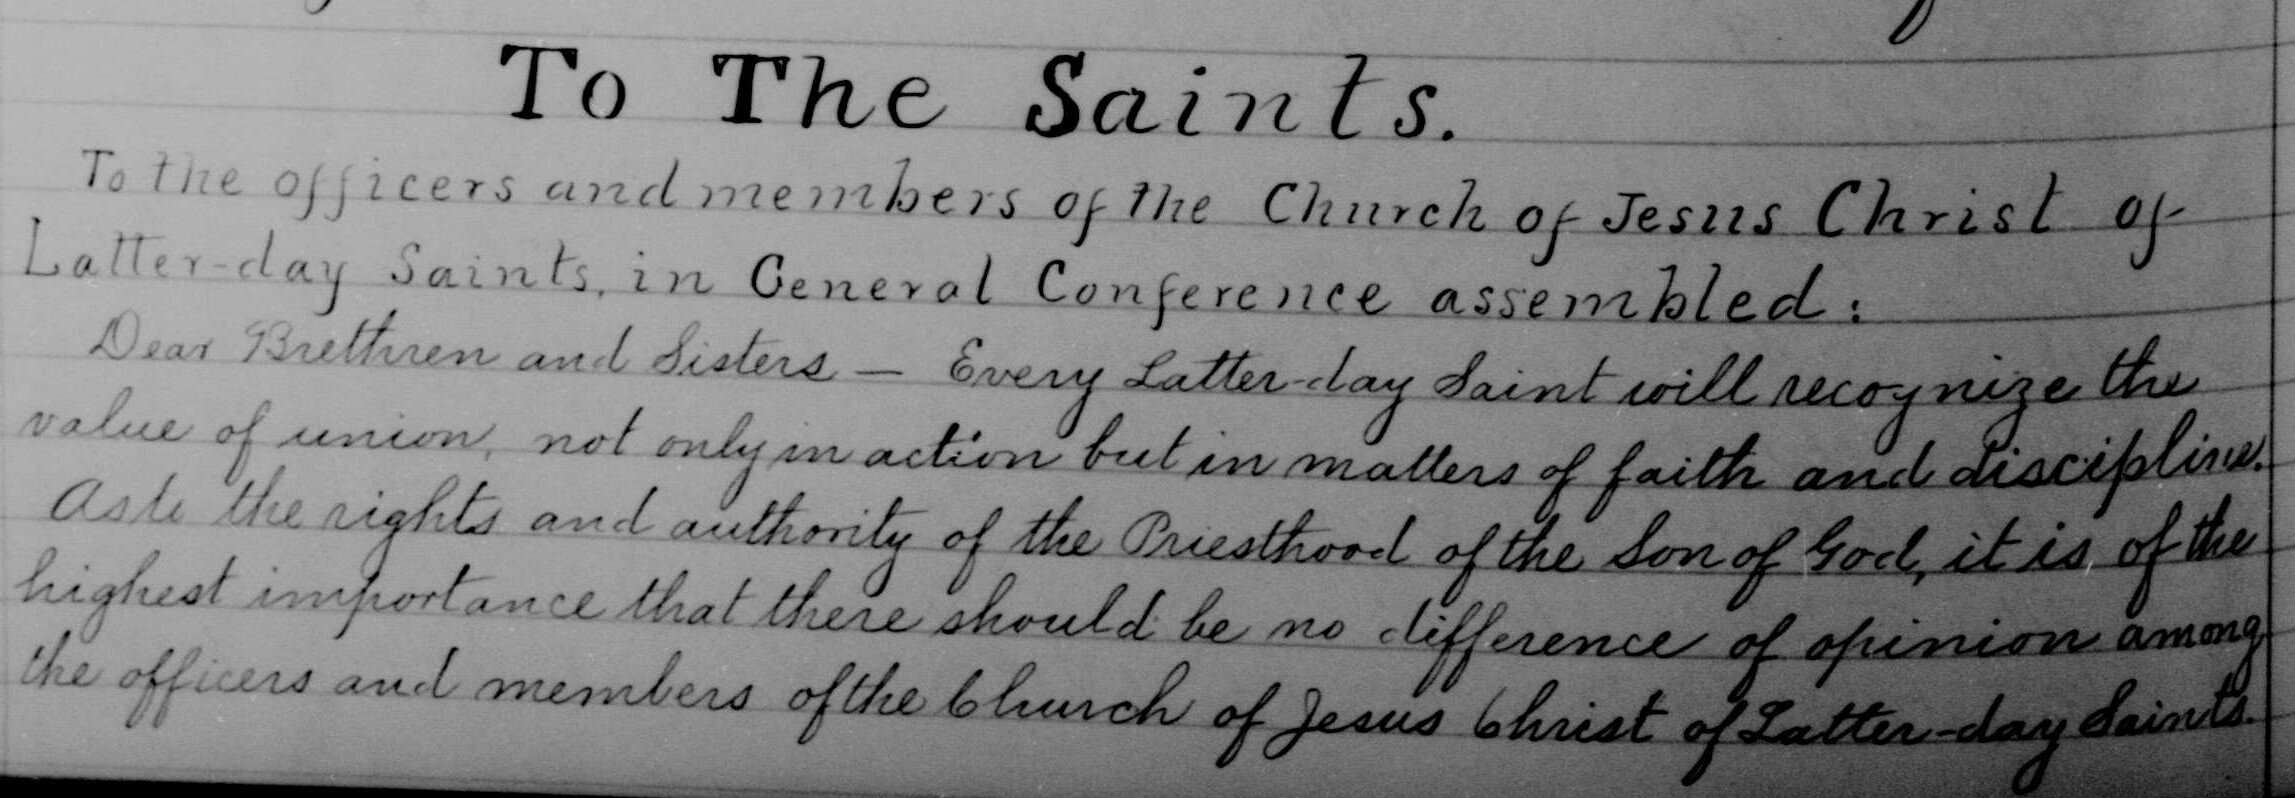 To The Saints.
To the officers and members of the Church of Jesus Christ of
Latter-day Saints, in General Conference assembled:
Dear Brethren and Sisters — Every Latter-day Saint will recognize the
value of union, not only in action but in matters of faith and discipline.
As to the rights and authority of the Priesthood of the Son of God, it is of the
highest importance that there should be no difference of opinion among
the officers and members of the Church of Jesus Christ of Latter-day Saints.